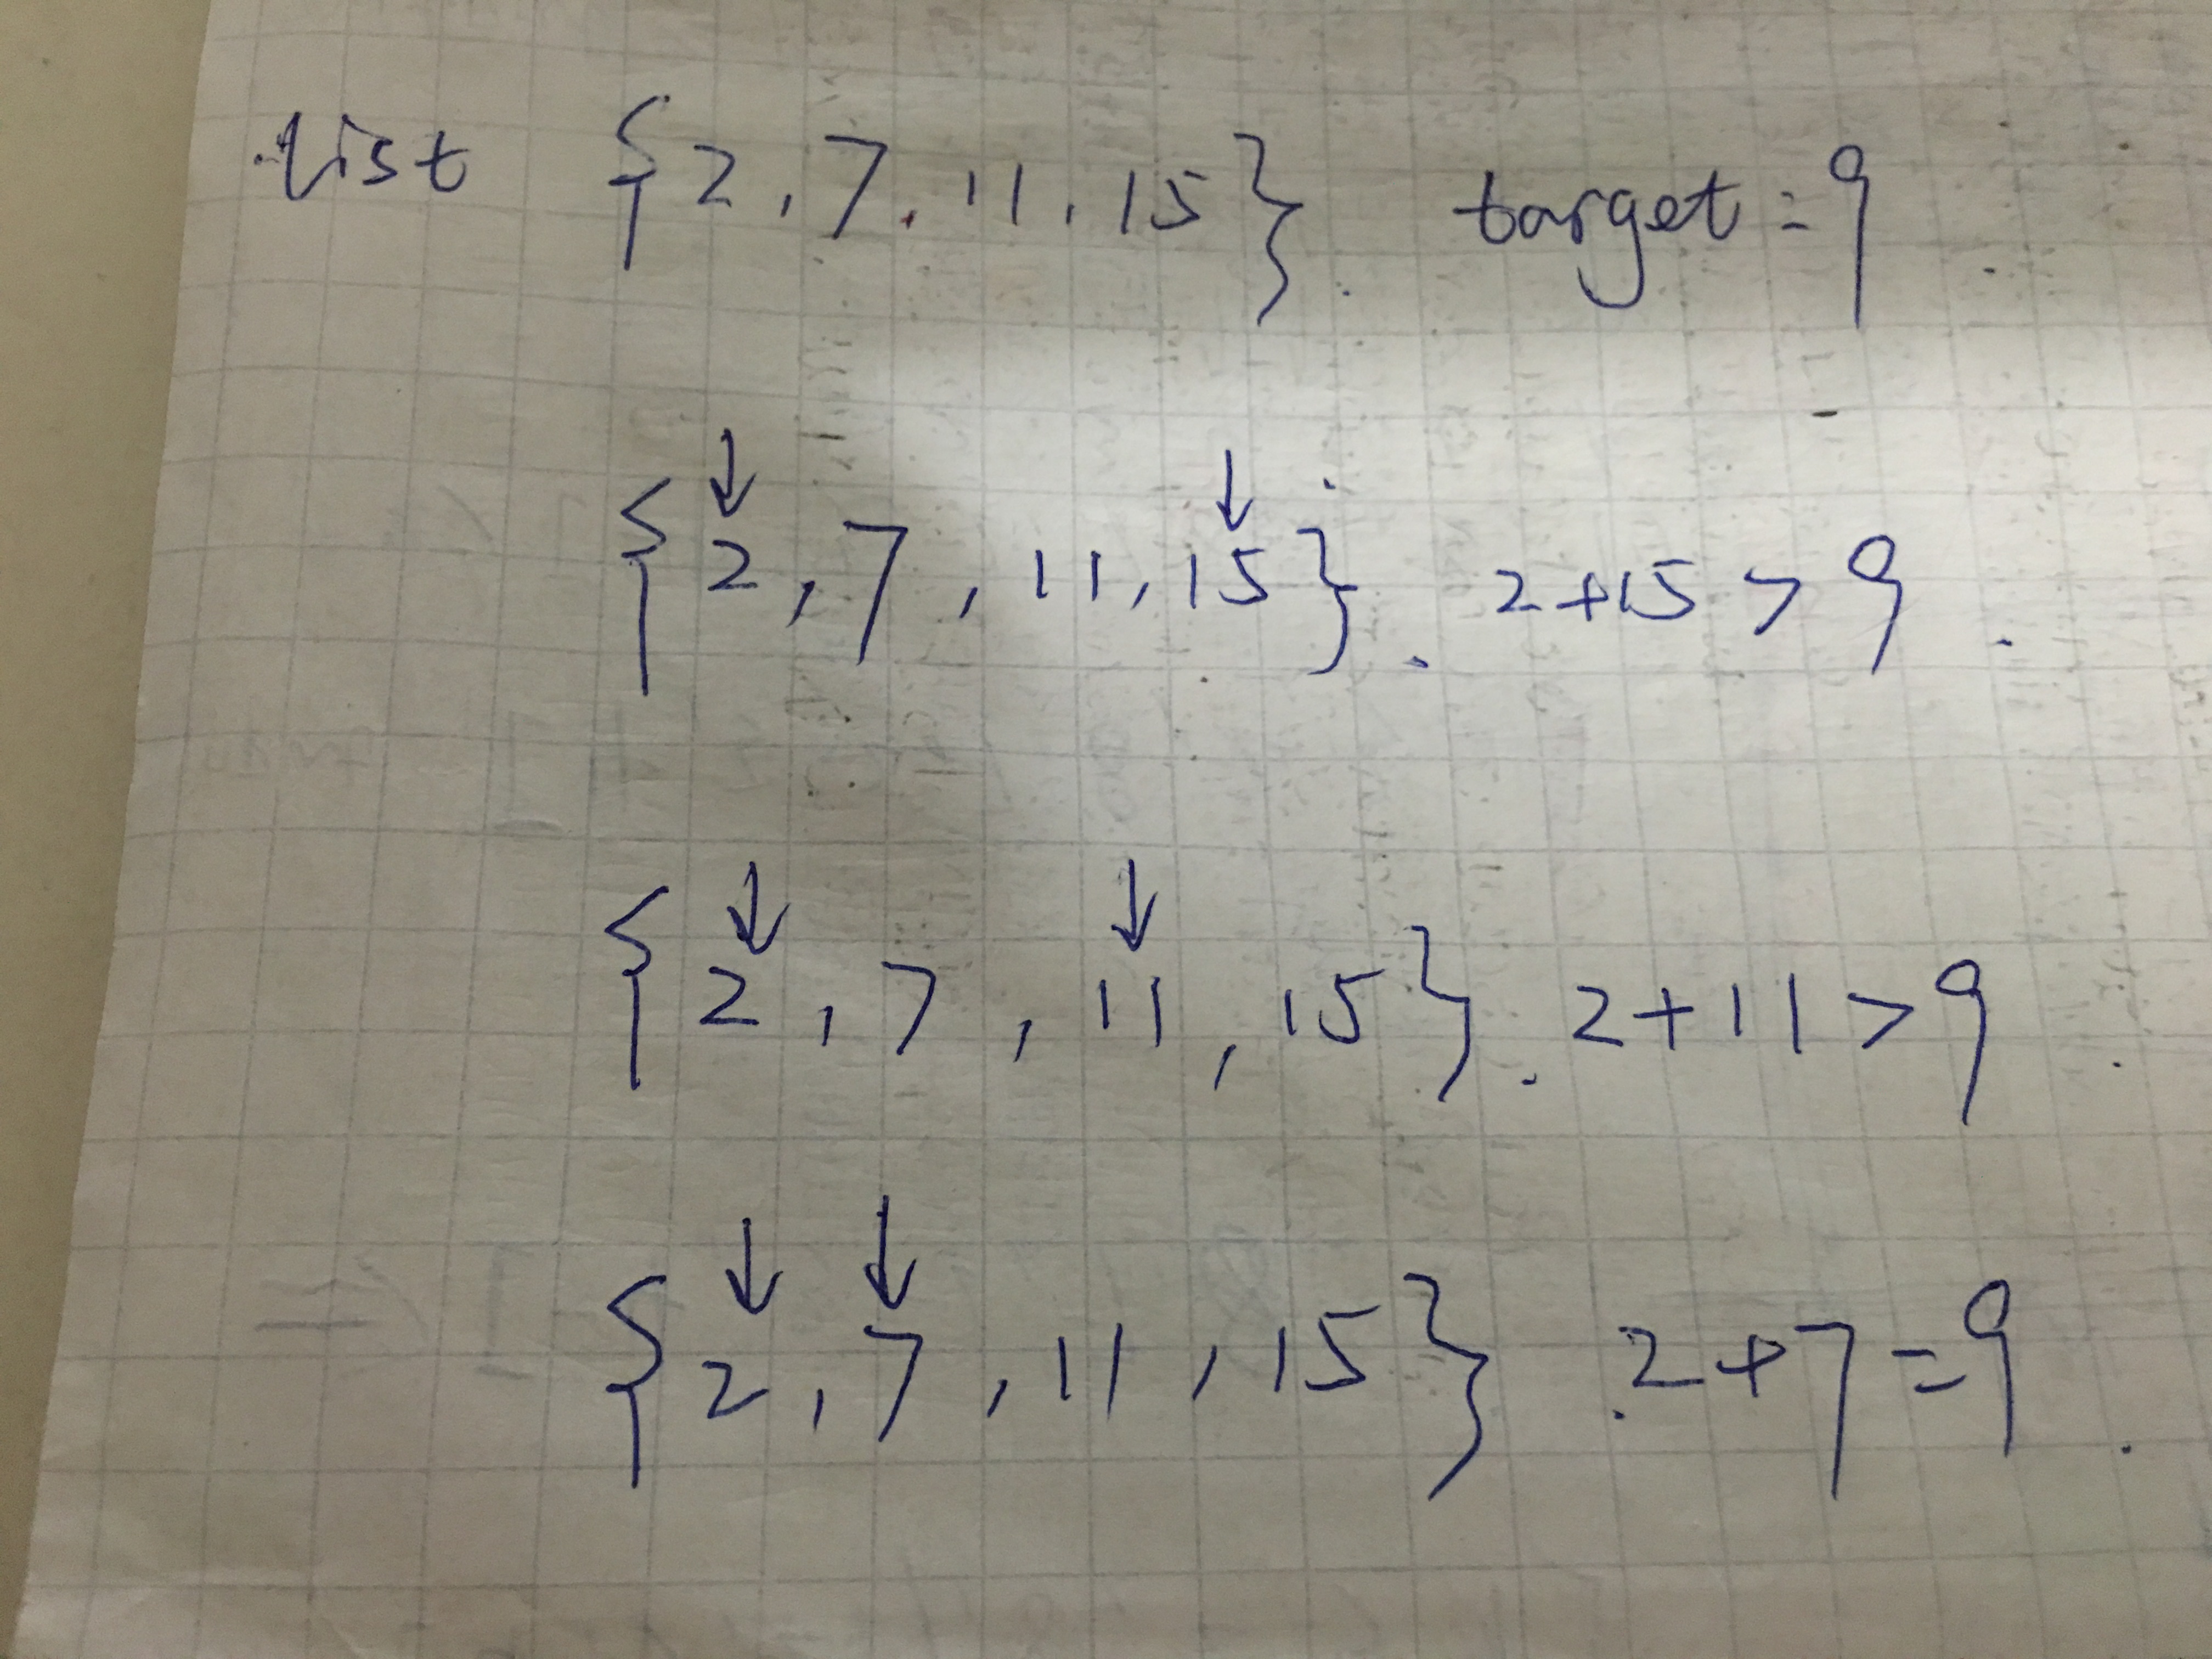 list {2,7,11,15} target=9
↓ ↓
{2,7,11,15}. 2+15>9
↓ ↓
{2,7,11,15}. 2+11>9
↓ ↓
{2,7,11,15}. 2+7=9